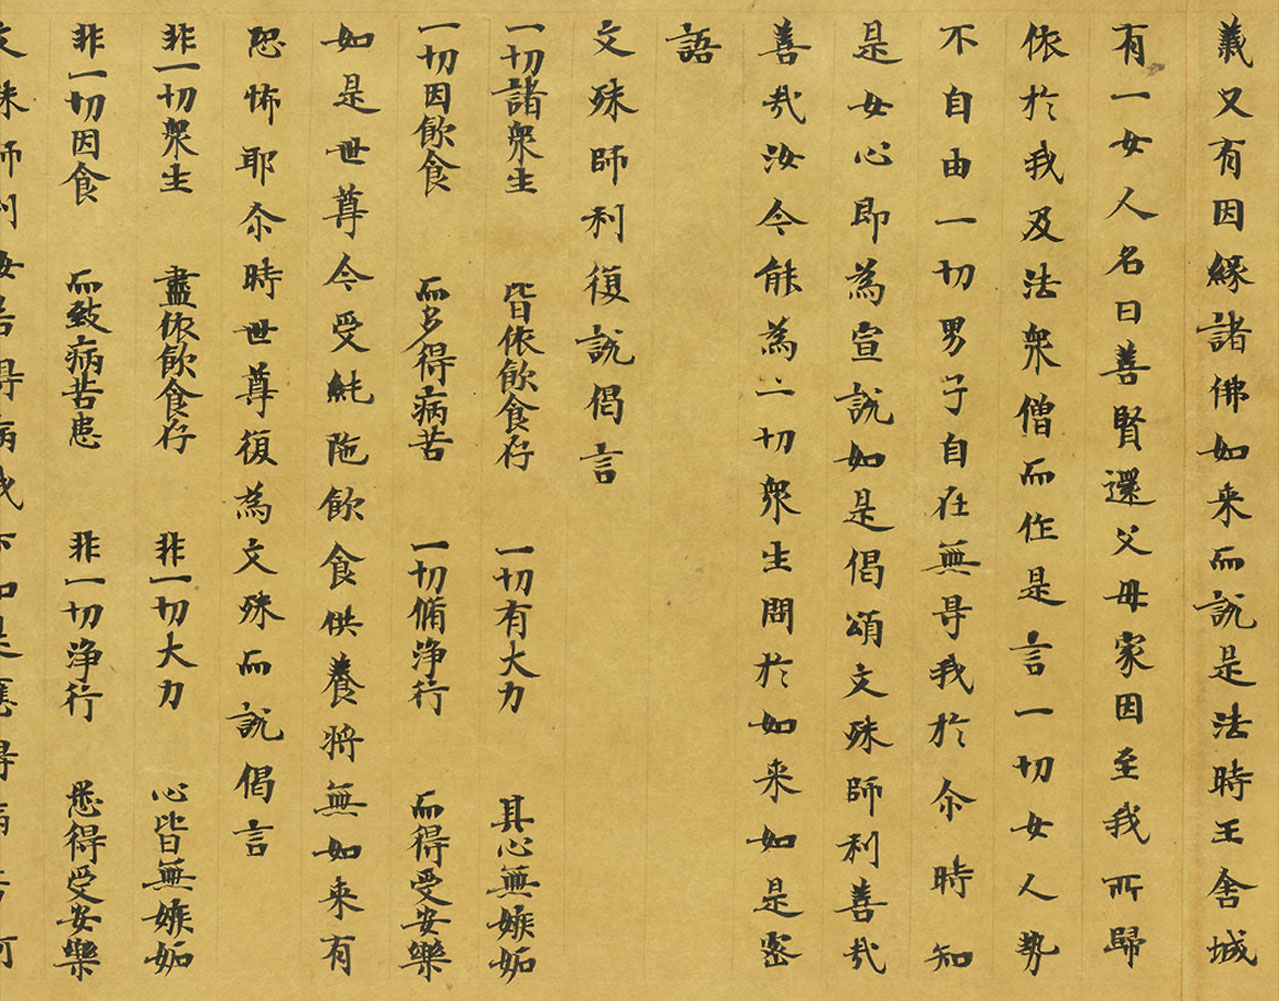 義又有因緣諸佛如来而說是法時王舍城
有一女人名曰善賢還父母家因至我所歸
依於我及法衆僧而作是言一切女人勢
不自由一切男子自在無㝵我於尒時知
是女心即為宣說如是偈頌文殊師利善哉
善哉汝今能為一切衆生問於如来如是密
語
文殊師利復說偈言
一切諸衆生 皆依飲食存 一切有大力 其心無嫉妬
一切因飲食 而多得病苦 一切脩淨行 而得受安樂
如是世尊今受純陁飲食供養将無如来有
恐怖耶尒時世尊復為文殊而說偈言
非一切衆生 盡依飲食存 非一切大力 心皆無嫉妬
非一切因食 而致病苦患 非一切淨行 悉得受安樂
文殊師利汝若得病我